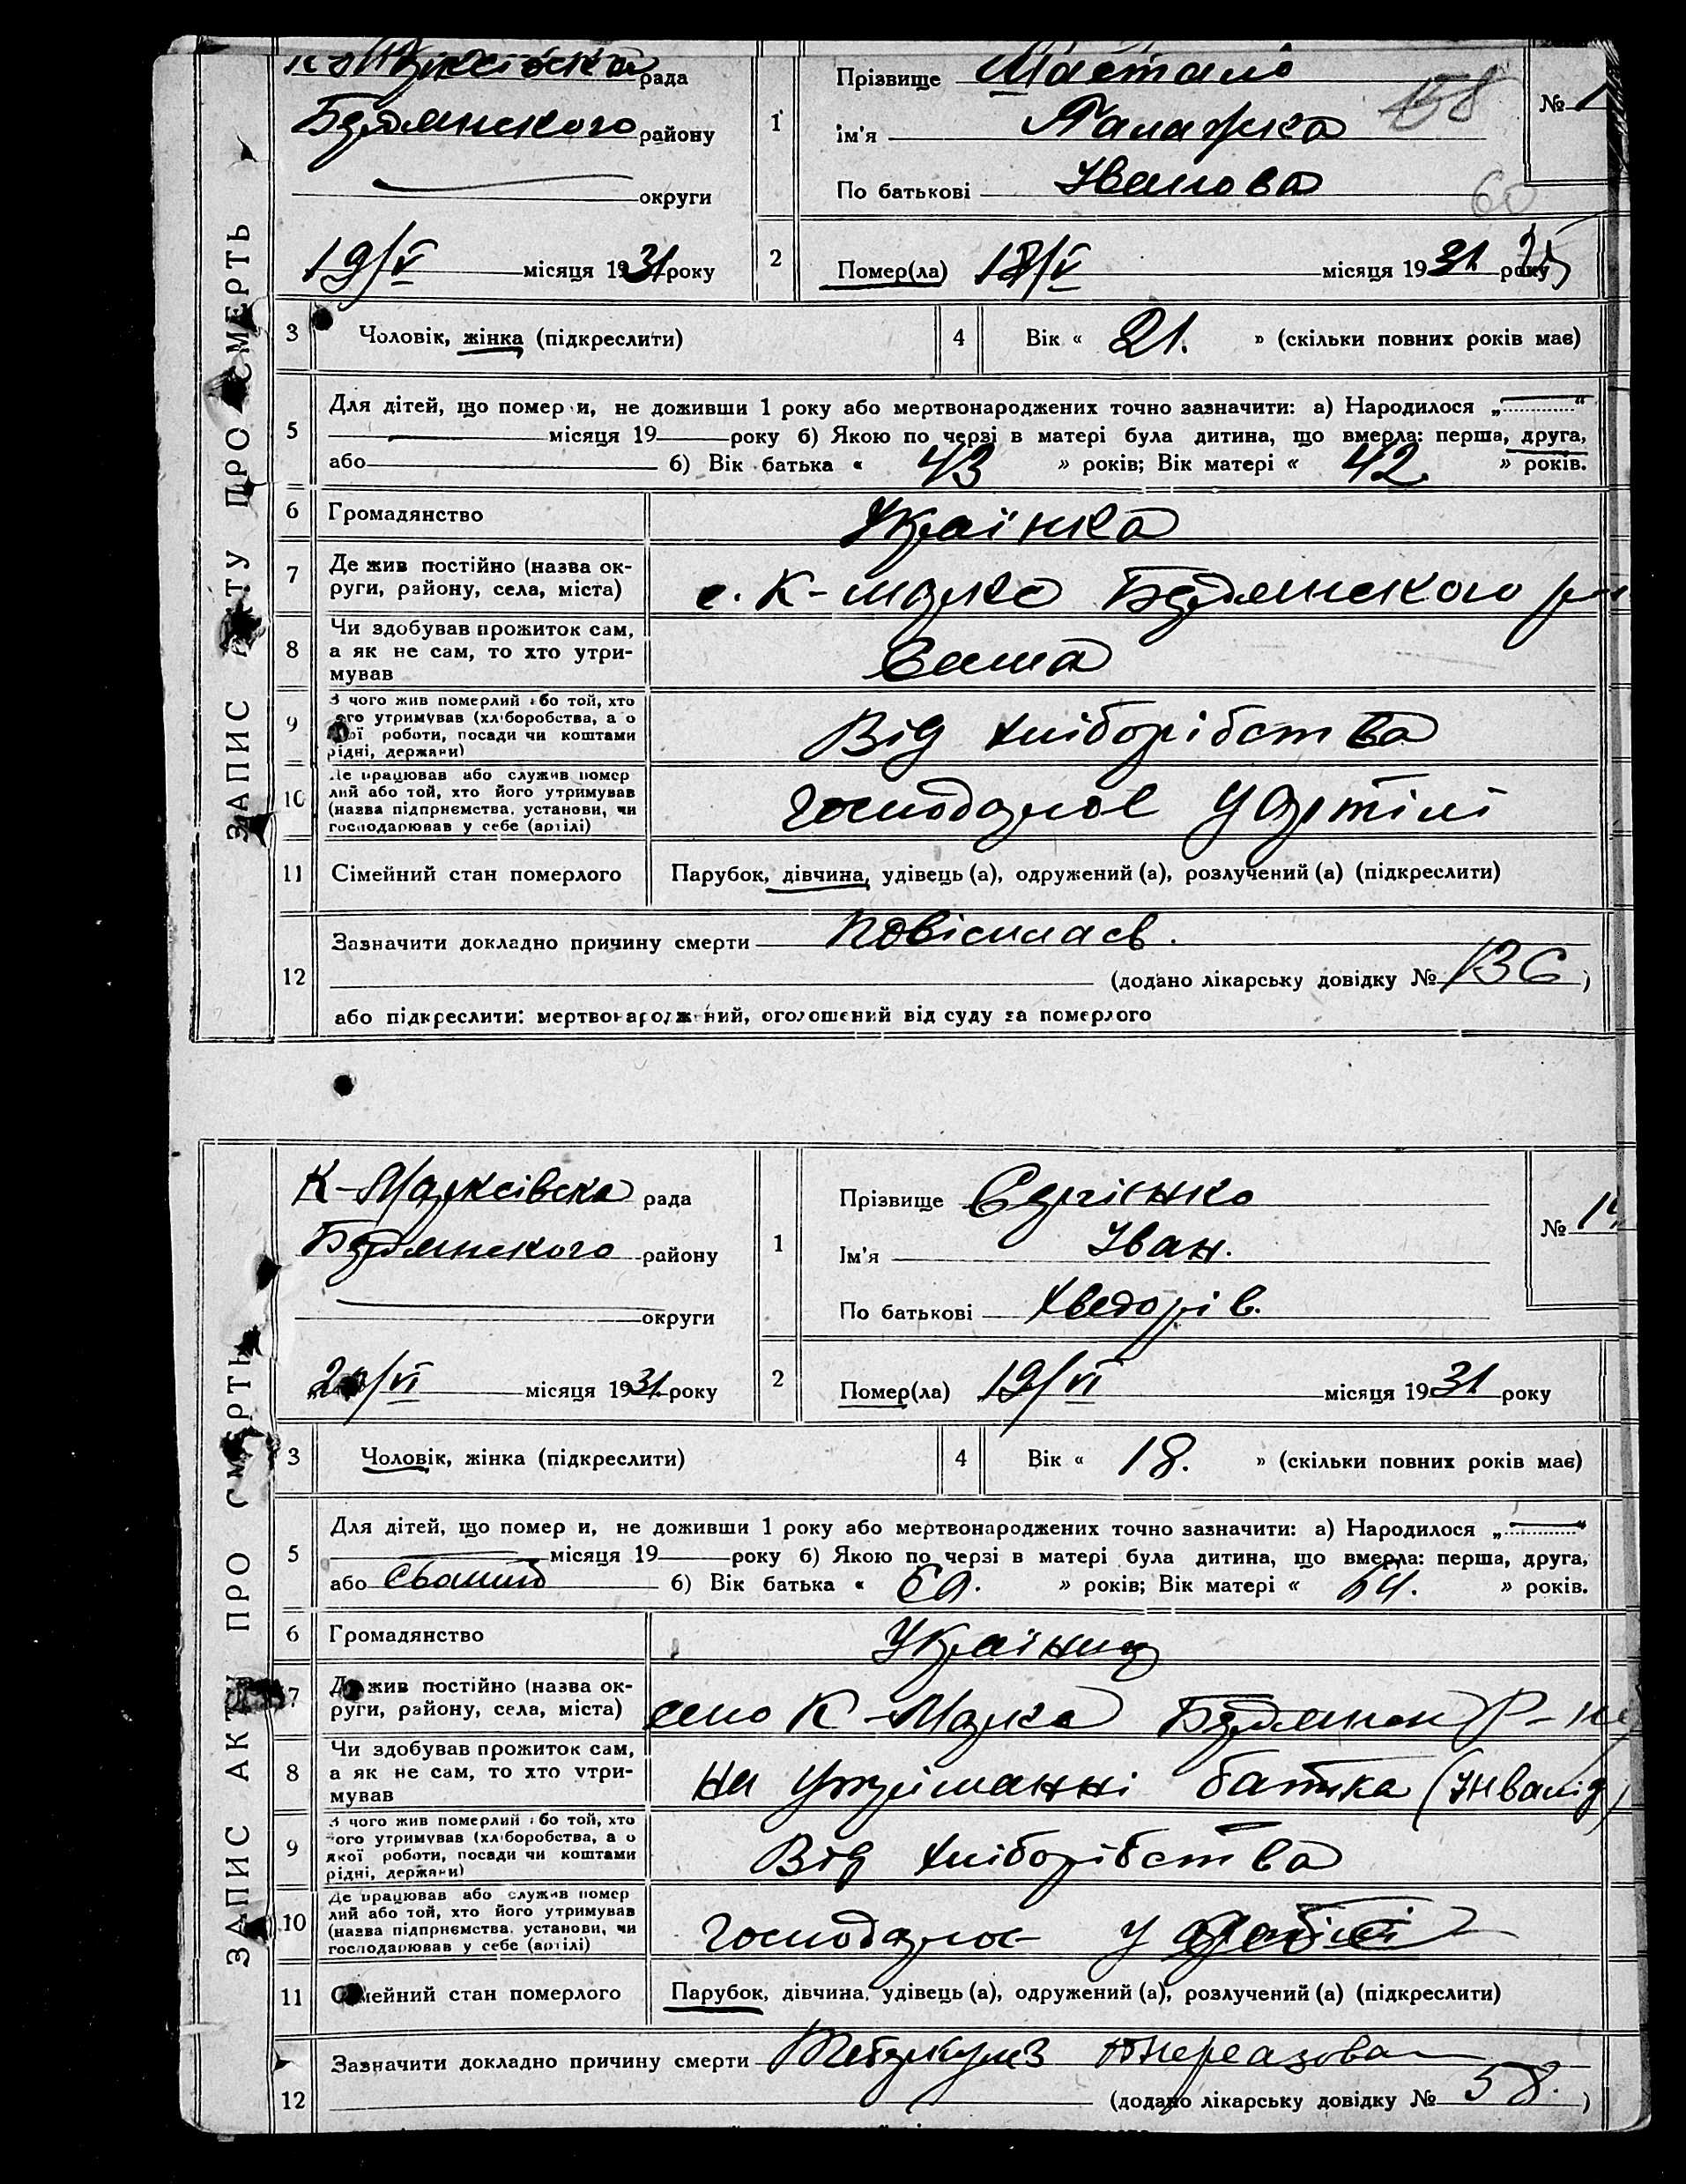 ЗАПИС АКТУ ПРО СМЕРТЬ
К-Марксівська рада
Будянського району
округи
19/V місяця 1931 року
1
Прізвище Шастало
ім'я Палажка
По батькові Іванова
№ 1
158
60
25
2
Помер(ла) 18/V місяця 1931 року
3 Чоловік, жінка (підкреслити)
4 Вік « 21. » (скільки повних років має)
5 Для дітей, що померли, не доживши 1 року або мертвонароджених точно зазначити: а) Народилося „............“
місяця 19 року б) Якою по черзі в матері була дитина, що вмерла: перша, друга,
або б) Вік батька « 43 » років; Вік матері « 42. » років.
6 Громадянство Українка
7 Де жив постійно (назва ок-
руги, району, села, міста) с. К-Маркса Будянського р-н
8 Чи здобував прожиток сам,
а як не сам, то хто утри-
мував Сама
9 З чого жив померлий або той, хто
його утримував (хліборобства, а о
якої роботи, посади чи коштами
рідні, держави) Від хліборібства
10 Де працював або служив помер
лий або той, хто його утримував
(назва підприємства, установи, чи
господарював у себе (артілі) господарює у артілі
11 Сімейний стан померлого Парубок, дівчина, удівець (а), одружений (а), розлучений (а) (підкреслити)
12 Зазначити докладно причину смерти Повісилась.
(додано лікарську довідку № 136)
або підкреслити: мертвонароджений, оголошений від суду за померлого
ЗАПИС АКТУ ПРО СМЕРТЬ
К-Марксівска рада
Будянського району
округи
20/VI місяця 1931 року
1
Прізвище Сергієнко
Ім'я Іван.
По батькові Хведорів.
№ 14
2
Помер(ла) 19/VI місяця 1931 року
3 Чоловік, жінка (підкреслити)
4 Вік « 18. » (скільки повних років має)
5 Для дітей, що померли, не доживши 1 року або мертвонароджених точно зазначити: а) Народилося „............“
місяця 19 року б) Якою по черзі в матері була дитина, що вмерла: перша, друга,
або б) Вік батька « » років; Вік матері « » років.
6 Громадянство Українец
7 Де жив постійно (назва ок-
руги, району, села, міста) село К-Маркса Будянськ р-ну
8 Чи здобував прожиток сам,
а як не сам, то хто утри-
мував На утриманні батька (Інвалід)
9 З чого жив померлий або той, хто
його утримував (хліборобства, а о
якої роботи, посади чи коштами
рідні, держави) Від хліборібства
10 Де працював або служив помер
лий або той, хто його утримував
(назва підприємства, установи, чи
господарював у себе (артілі) господарює у
11 Сімейний стан померлого Парубок, дівчина, удівець (а), одружений (а), розлучений (а) (підкреслити)
12 Зазначити докладно причину смерти Тюберкульоз
(додано лікарську довідку № 58.)